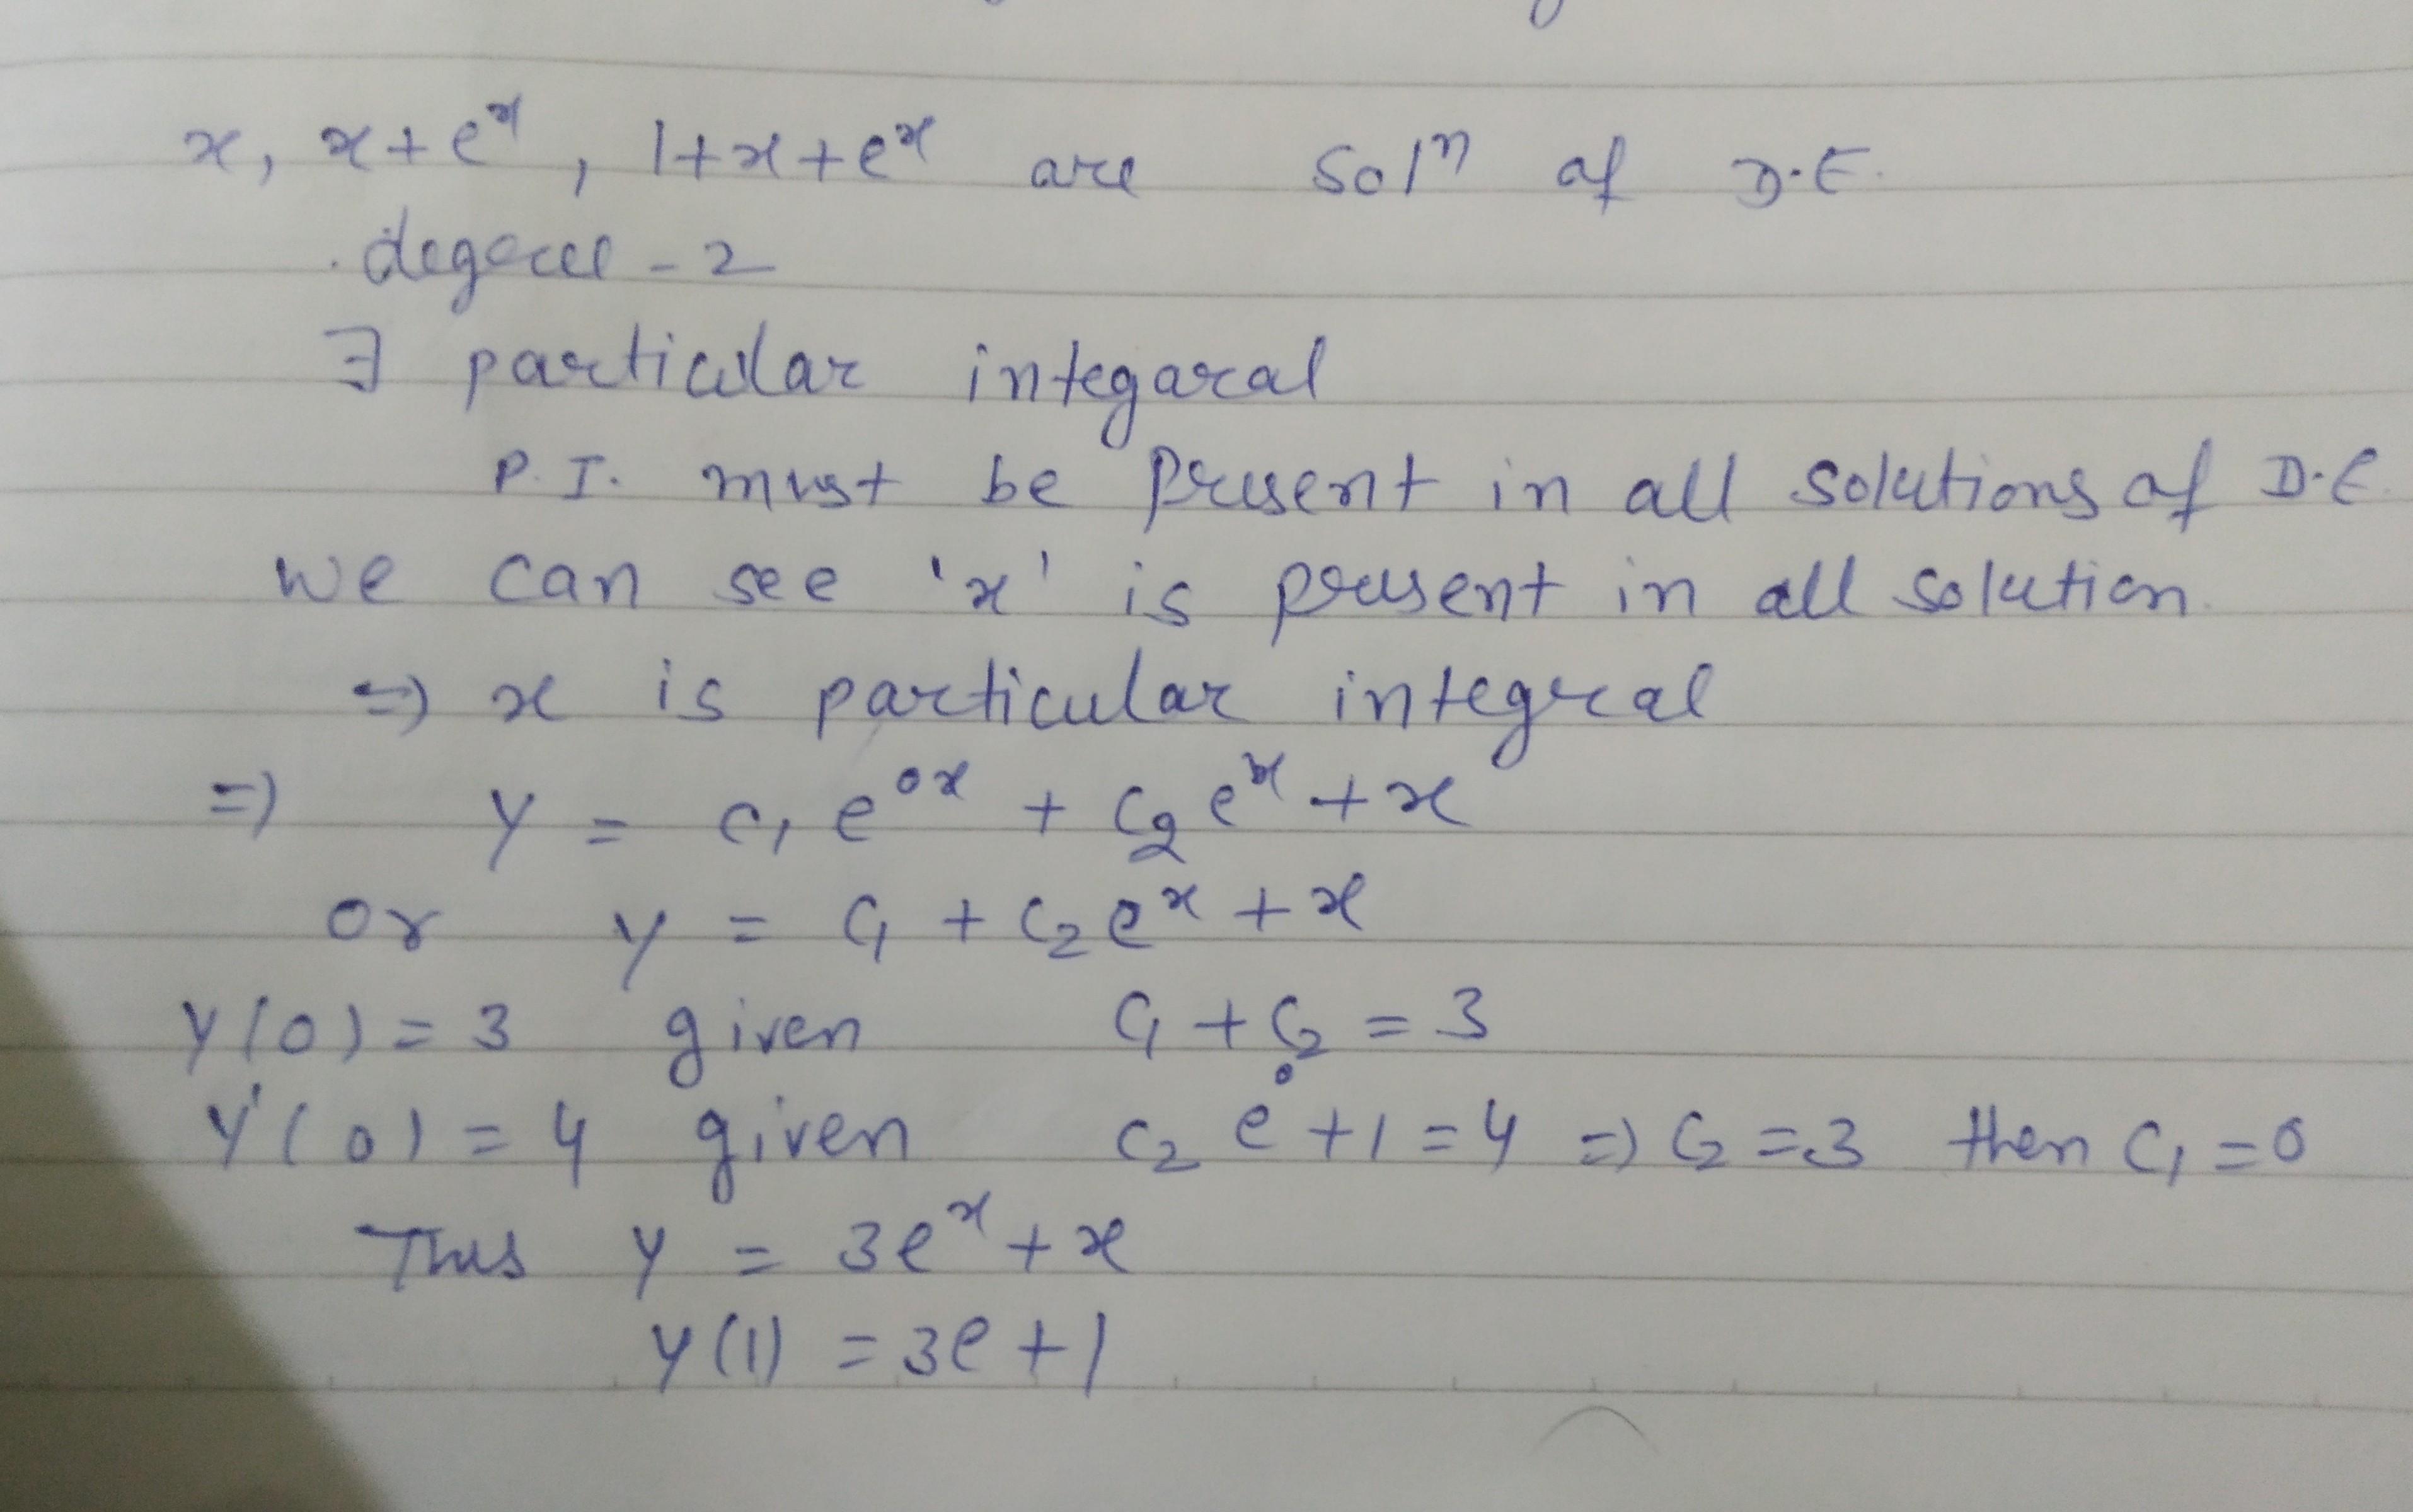 x, x+e^x, 1+x+e^x are sol^n of D.E.
degree - 2
∃ particular integaral
P.I. must be present in all solutions of D.E
we can see 'x' is present in all solution.
=> x is particular integral
=> y = c₁ e^{0x} + c₂ e^x + x
or y = c₁ + c₂ e^x + x
y(0) = 3 given c₁ + c₂ = 3
y'(0) = 4 given c₂ e^0 + 1 = 4 => c₂ = 3 then c₁ = 0
Thus y = 3e^x + x
y(1) = 3e + 1